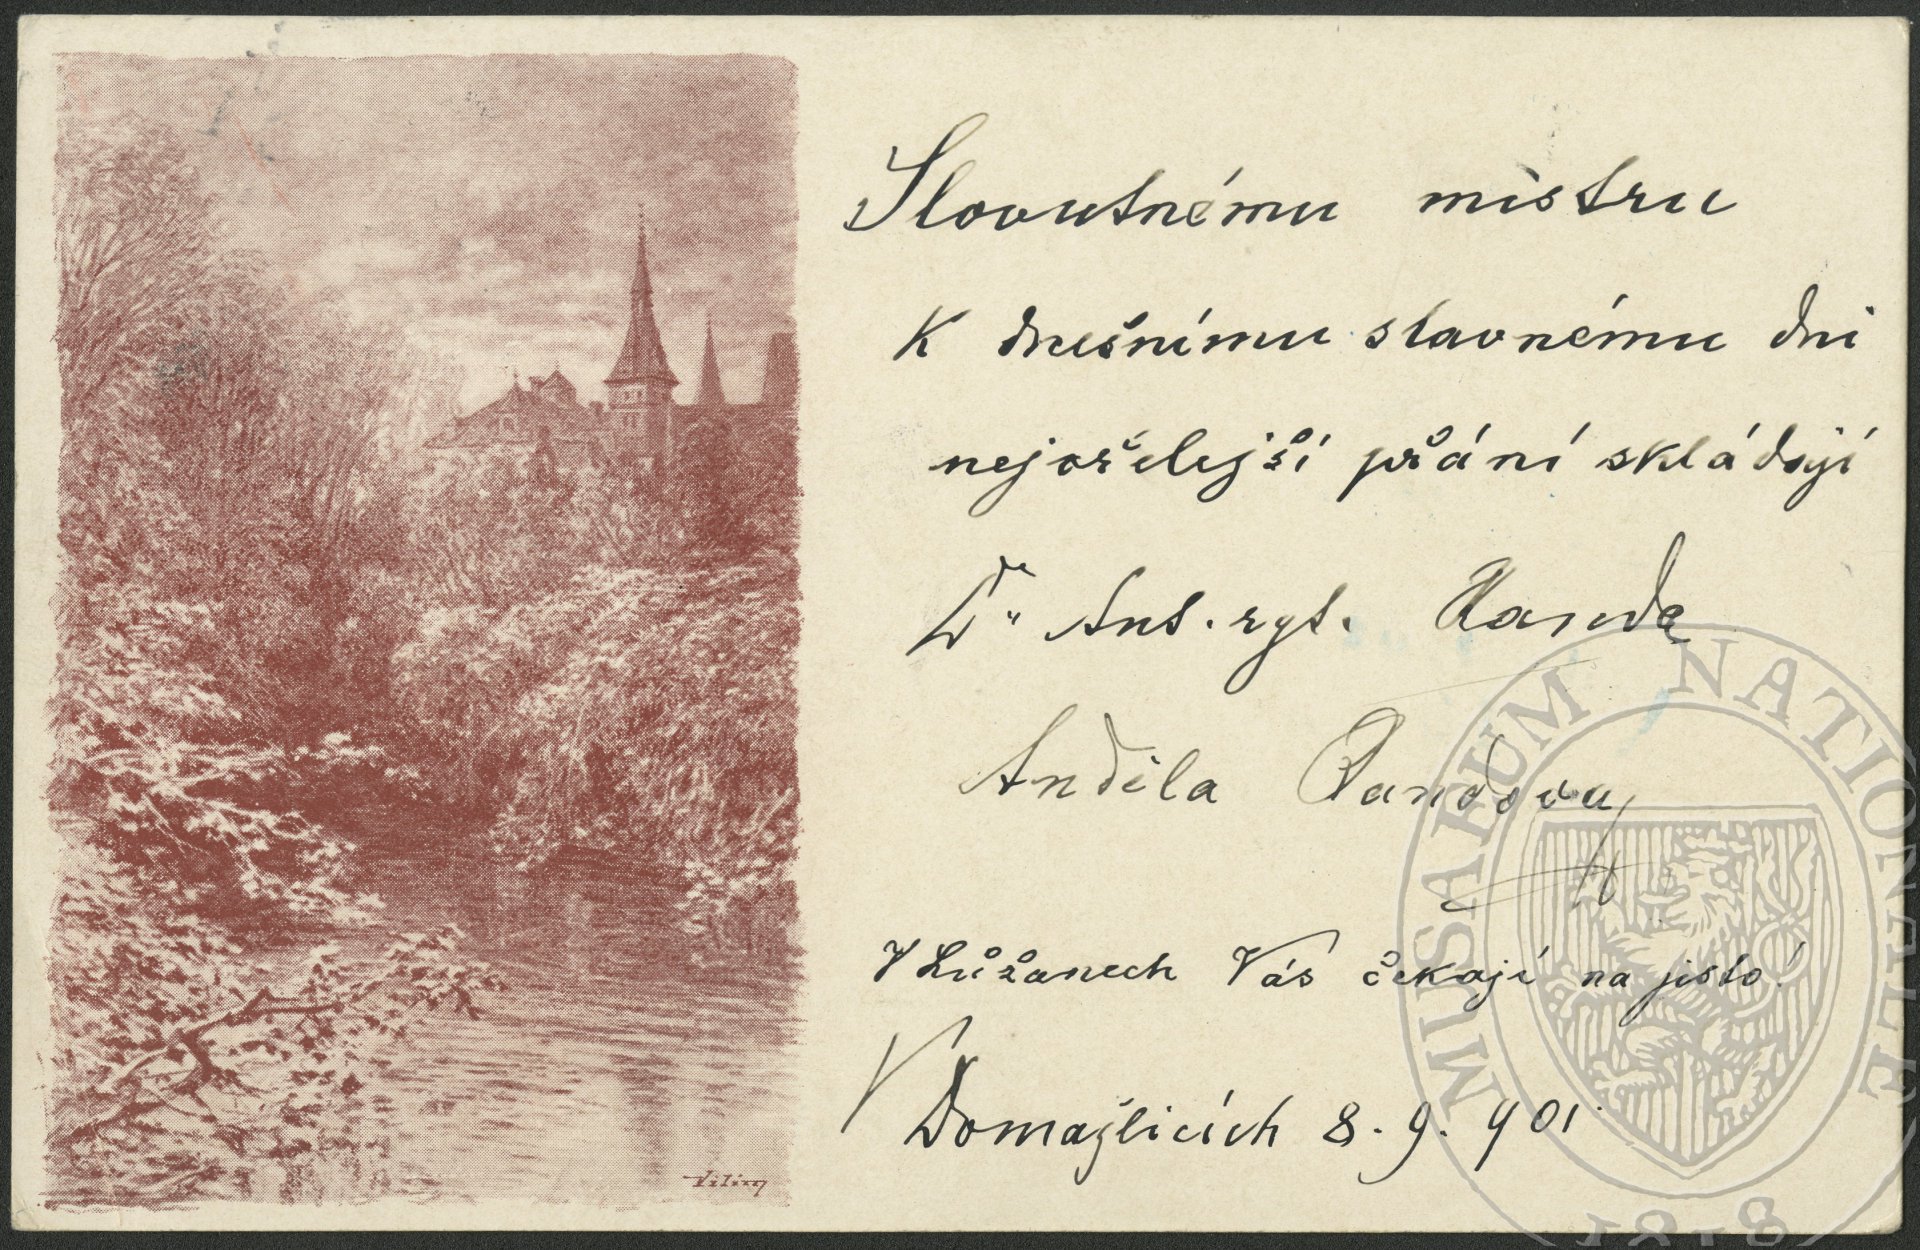 Slovutnému mistru
K dnešnímu slavnému dni
nejvřelejší přání skládají
Dr. Ant. ryt. Randa
Anděla Randova
V Lúžanech Vás čekají na jisto!
V Domažlicích 8. 9. 901
Vilím
MUSAEUM NATIONALE
1818